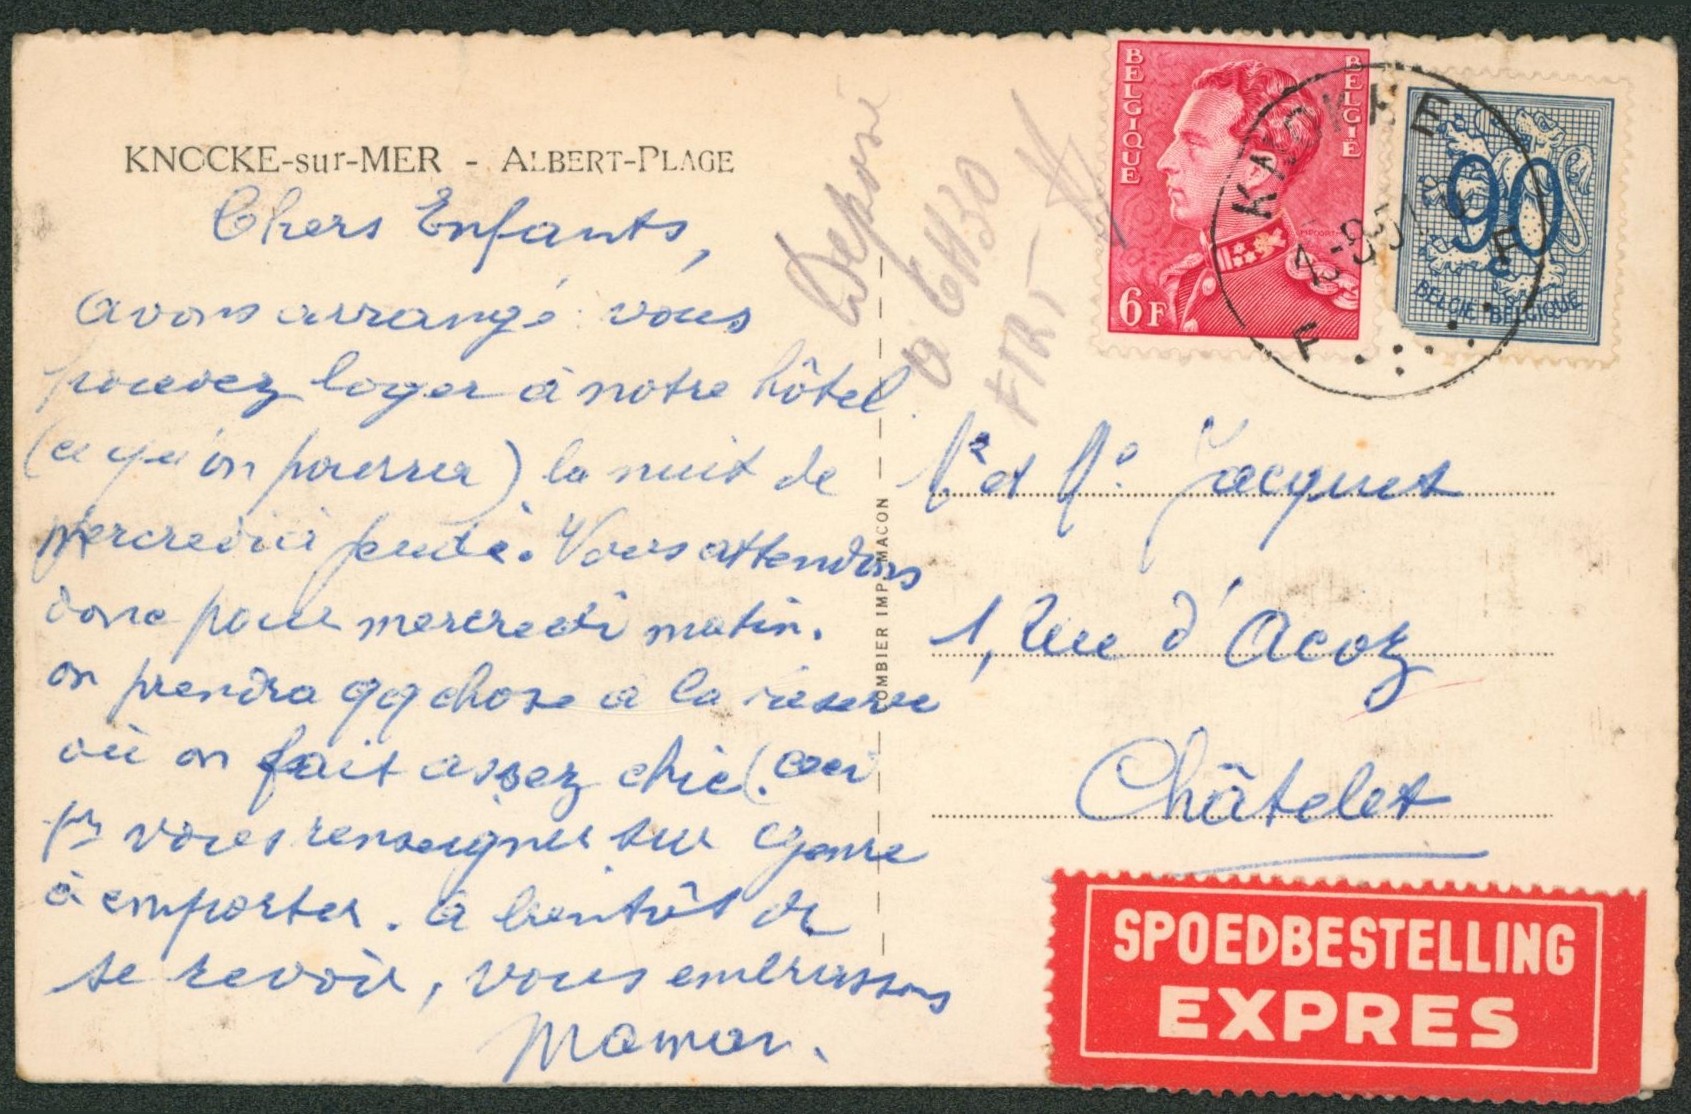 KNOCKE-sur-MER - ALBERT-PLAGE
Chers Enfants,
avons arrangé: vous
pouvez loger à notre hôtel
(ce qu'on pourrer) la nuit de
mercredi à jeudi. Vous attendons
donc pour mercredi matin.
on prendra qq chose à la réserve
où on fait assez chic (. ceci
pr vous renseigner sur genre
à emporter. à bientôt de
se revoir, vous embrassons
Maman.
COMBIER IMP MACON
Déposé
à 6H30
BELGIQUE
BELGIË
6F
90
BELGIE BELGIQUE
KNOKKE
F F
Mr et Me Jacquet
1, Rue d'Acoz
Châtelet
SPOEDBESTELLING
EXPRES